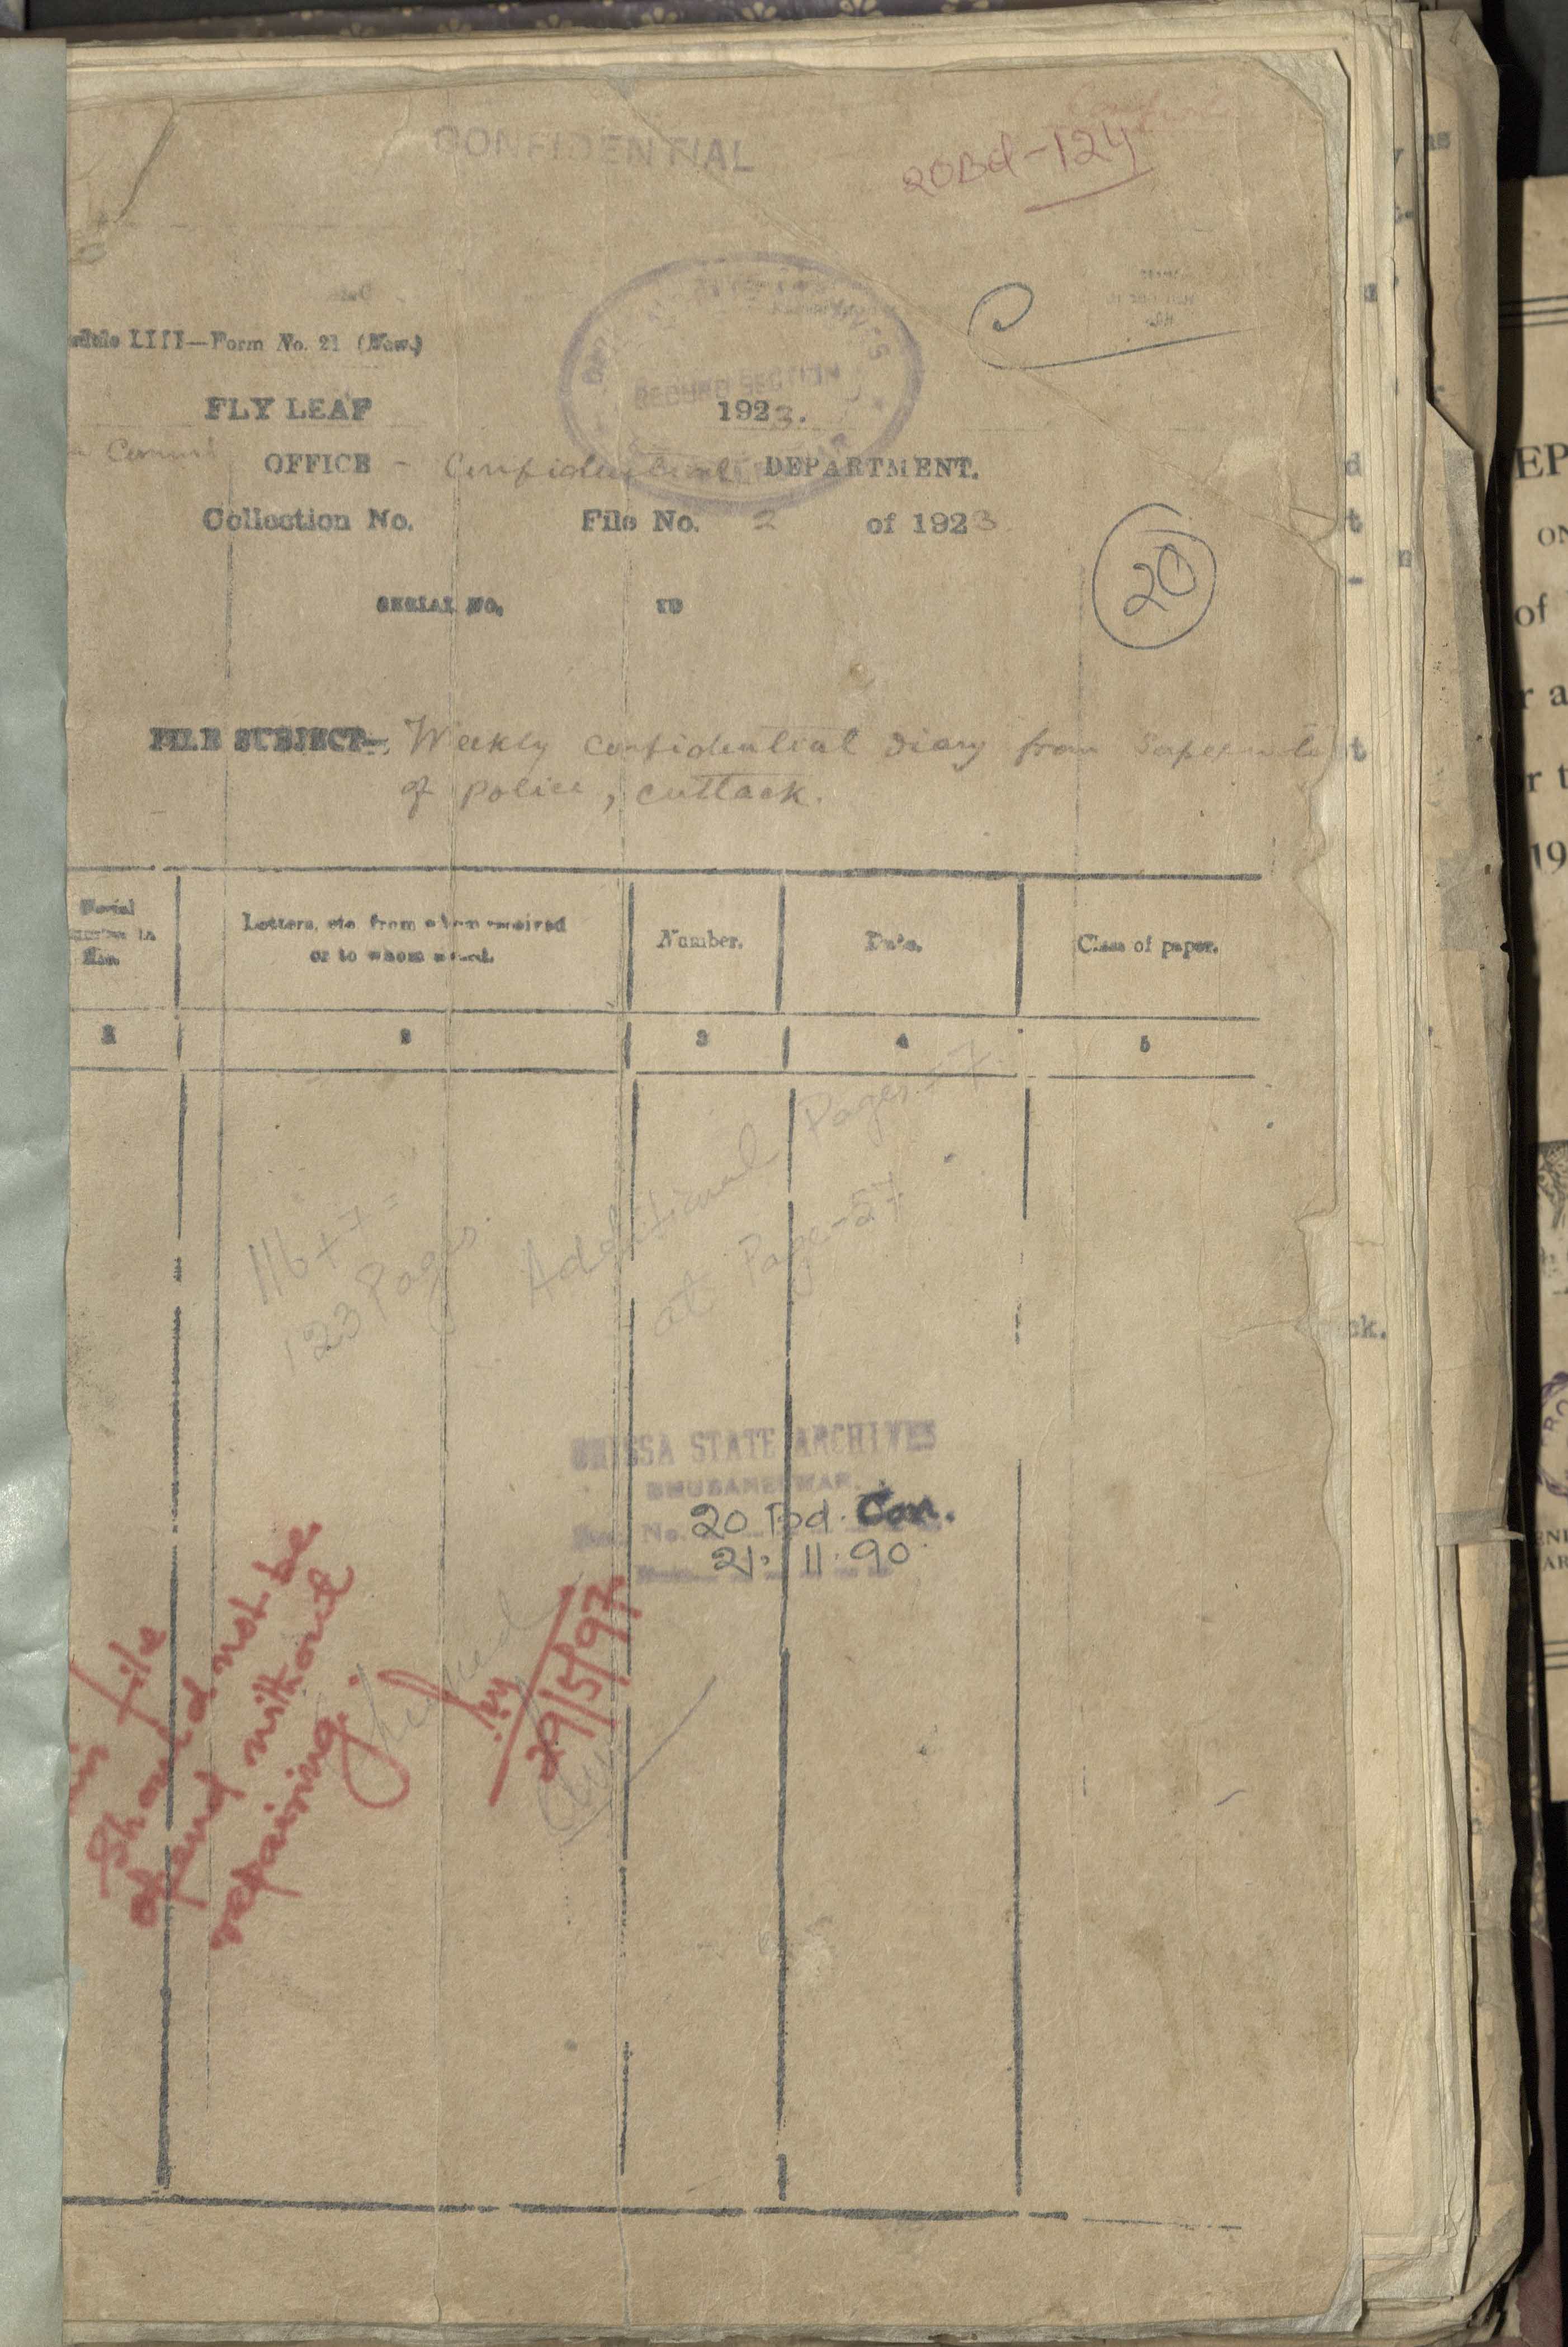 CONFIDENTIAL
20Bd-124
LIII—Form No. 21 (New.)
FLY LEAF
RECORD SECTION
1923.
OFFICE - Confidential DEPARTMENT.
Collection No. File No. 2 of 1923
20
SERIAL NO. TO
FILE SUBJECT— Weekly confidential diary from
of Police, Cuttack.
Serial
Letters, etc. from whom received
or to whom
Number.
Date.
Class of paper.
2 3 4 5
Additional Pages = 7
at Page-57
116 + 7 =
123 Pages
ORISSA STATE ARCHIVES
BHUBANESWAR.
No. 20 Bd. Con.
21.11.90
file
should not be
opend without
repairing.
29/5/97